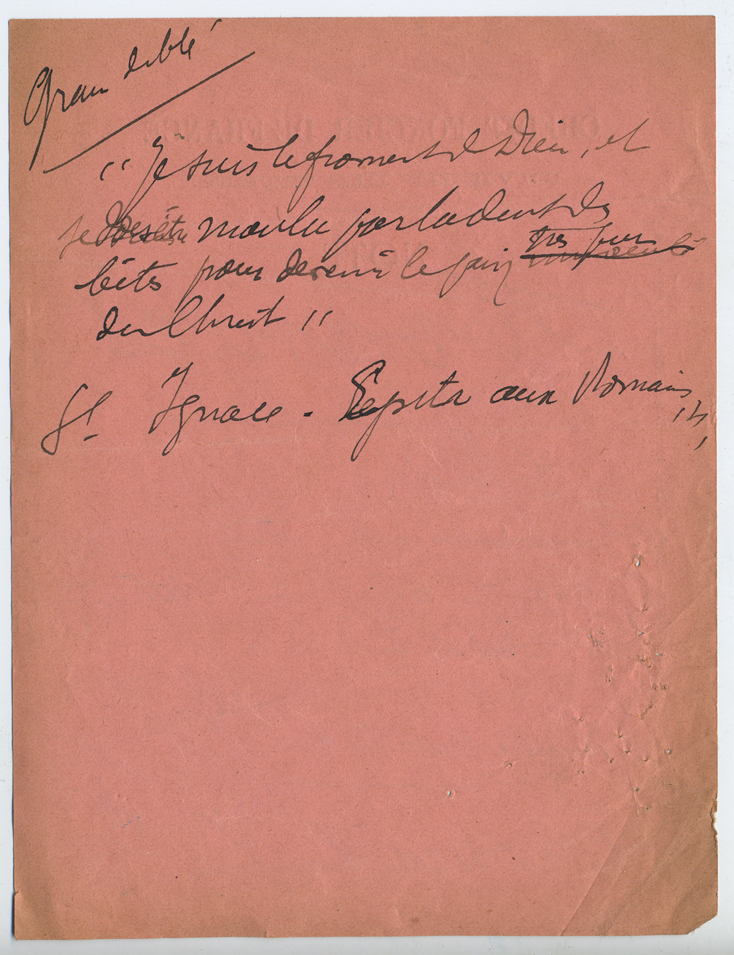 Grain de blé
"Je suis le froment de Dieu, et
je dois être moulu par la dent des
bêtes pour devenir le pain très pur
du Christ"
St Ignace - Epitr aux Romains